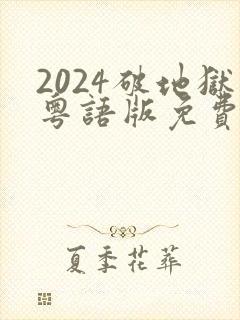 2024破地獄
粵語版免費
夏季花葬